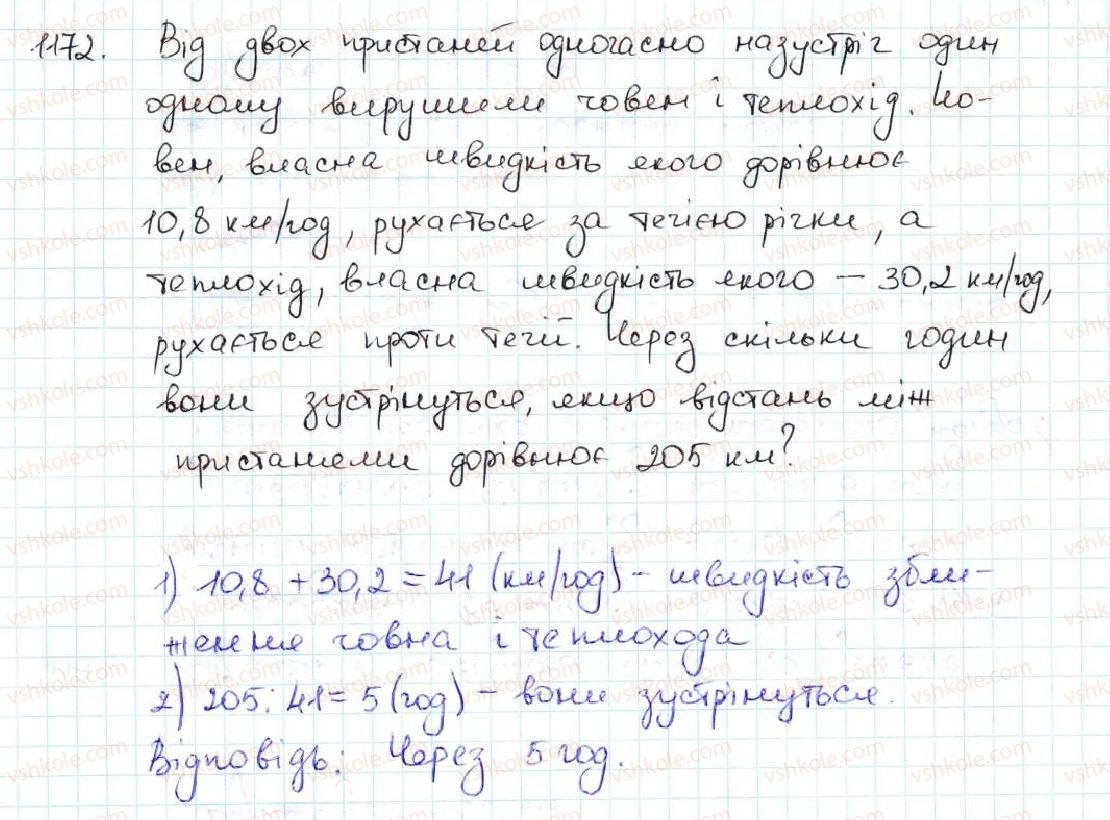 1172. Від двох пристаней одночасно назустріч один
одному вирушили човен і теплохід. Чо-
вен, власна швидкість якого дорівнює
10,8 км/год, рухається за течією річки, а
теплохід, власна швидкість якого — 30,2 км/год,
рухається проти течії. Через скільки годин
вони зустрінуться, якщо відстань між
пристанями дорівнює 205 км?
1) 10,8 + 30,2 = 41 (км/год) – швидкість збли-
ження човна і теплохода
2) 205 : 41 = 5 (год) – вони зустрінуться.
Відповідь: Через 5 год.
vshkole.com